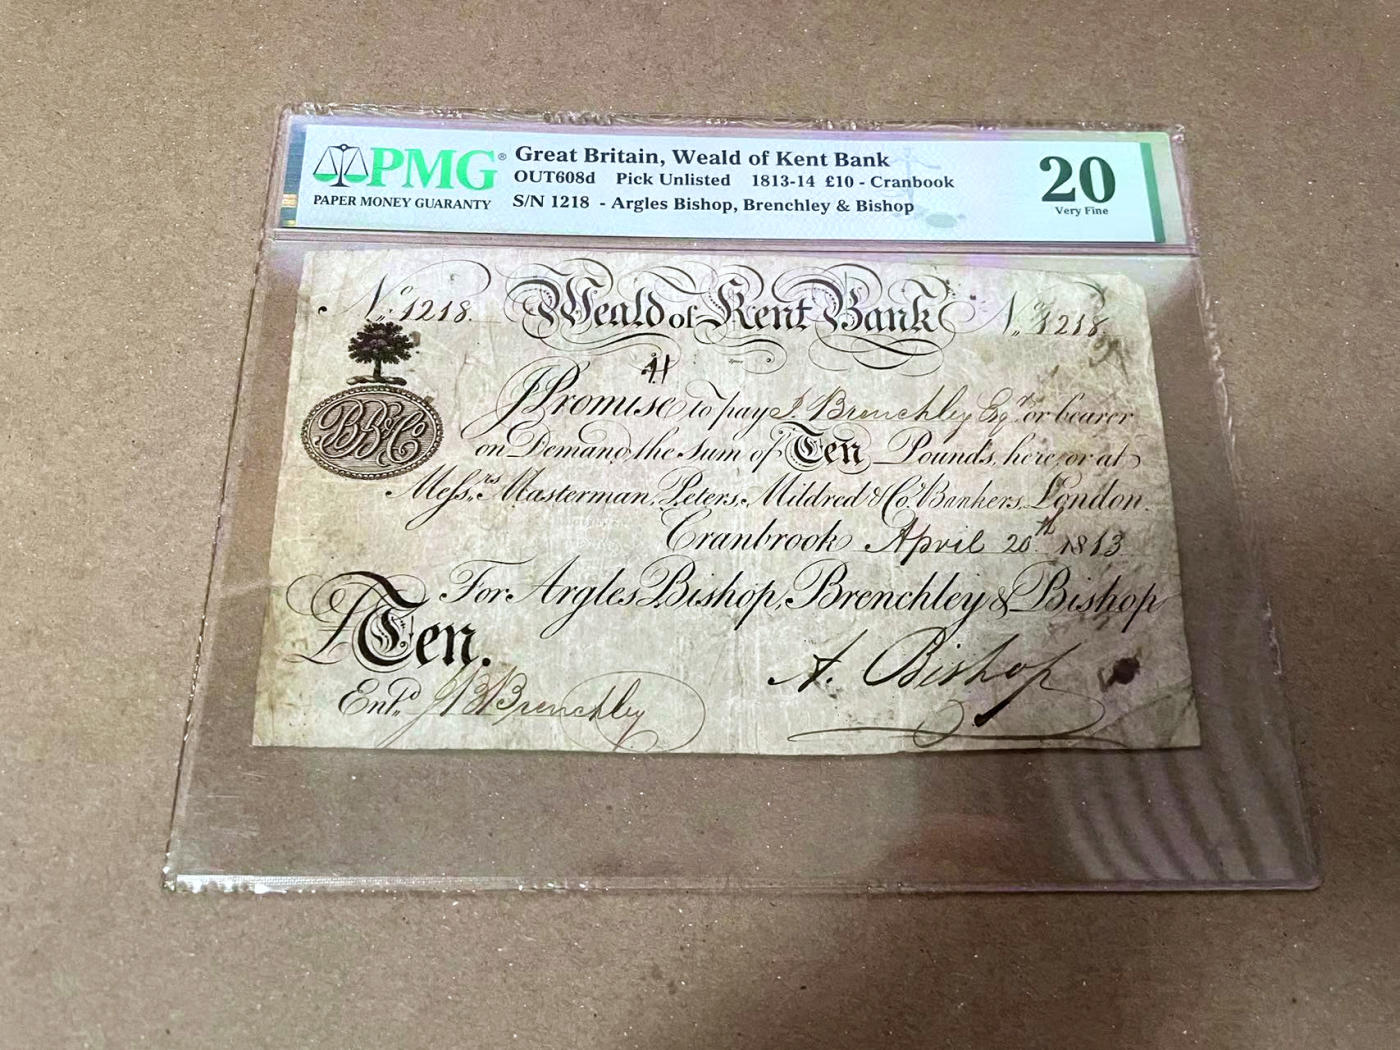 PMG®
PAPER MONEY GUARANTY
Great Britain, Weald of Kent Bank
OUT608d Pick Unlisted 1813-14 £10 - Cranbook
S/N 1218 - Argles Bishop, Brenchley & Bishop
20
Very Fine
No. 1218. Weald of Kent Bank No. 1218
BB&Co
I Promise to pay J. Brenchley Esqr. or bearer
on Demand, the Sum of Ten Pounds, here, or at
Messrs. Masterman, Peters, Mildred & Co. Bankers, London.
Cranbrook April 20th 1813
For Argles Bishop, Brenchley & Bishop
£Ten.
A. Bishop
Entd. Brenchley